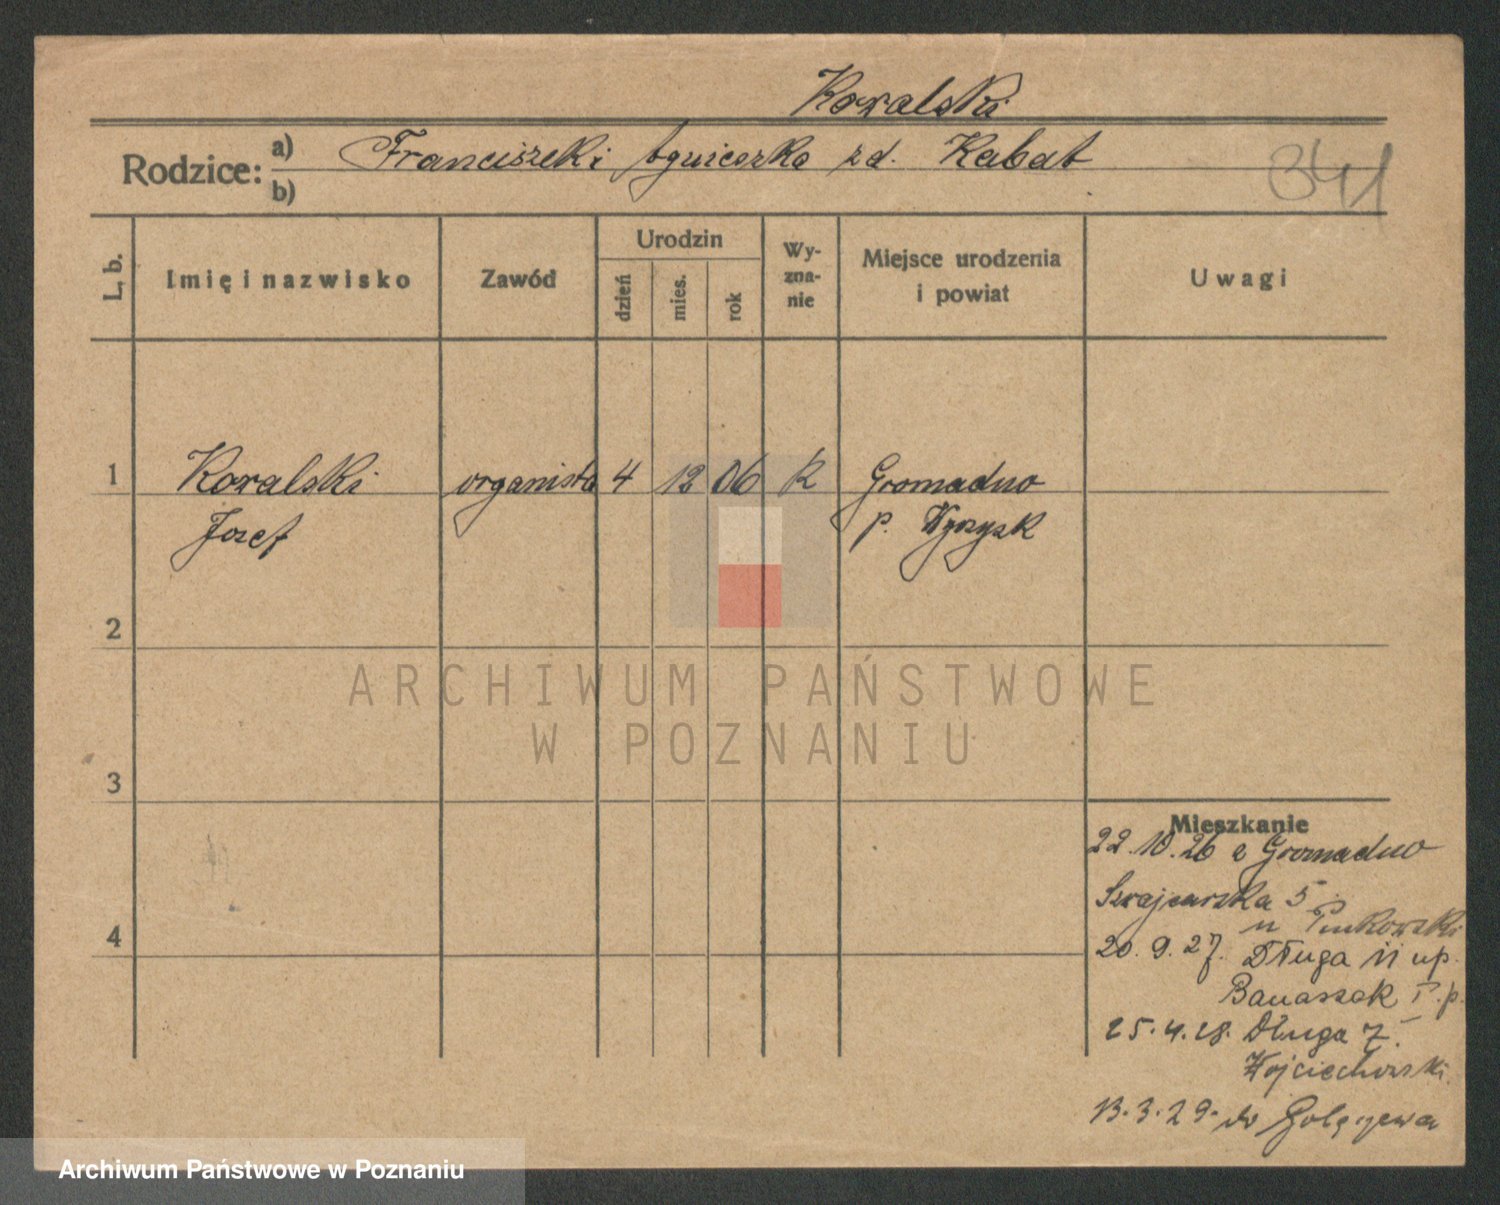 Kowalski
Rodzice: a) Franciszek i Agnieszka zd. Kabat
b)
341
L. b. Imię i nazwisko Zawód Urodzin dzień mies. rok Wy-zna-nie Miejsce urodzenia i powiat Uwagi
1 Kowalski organista 4 12 06 k Gromadno
Józef p. Wyrzysk
2
ARCHIWUM PAŃSTWOWE
W POZNANIU
3
Mieszkanie
22.10.26 z Gromadno
Szwajcarska 5
u
4
20.9.27. Długa 11 up.
Banaszak I.p.
25.4.28. Długa 7.
Wojciechowski.
13.3.29. do
Archiwum Państwowe w Poznaniu